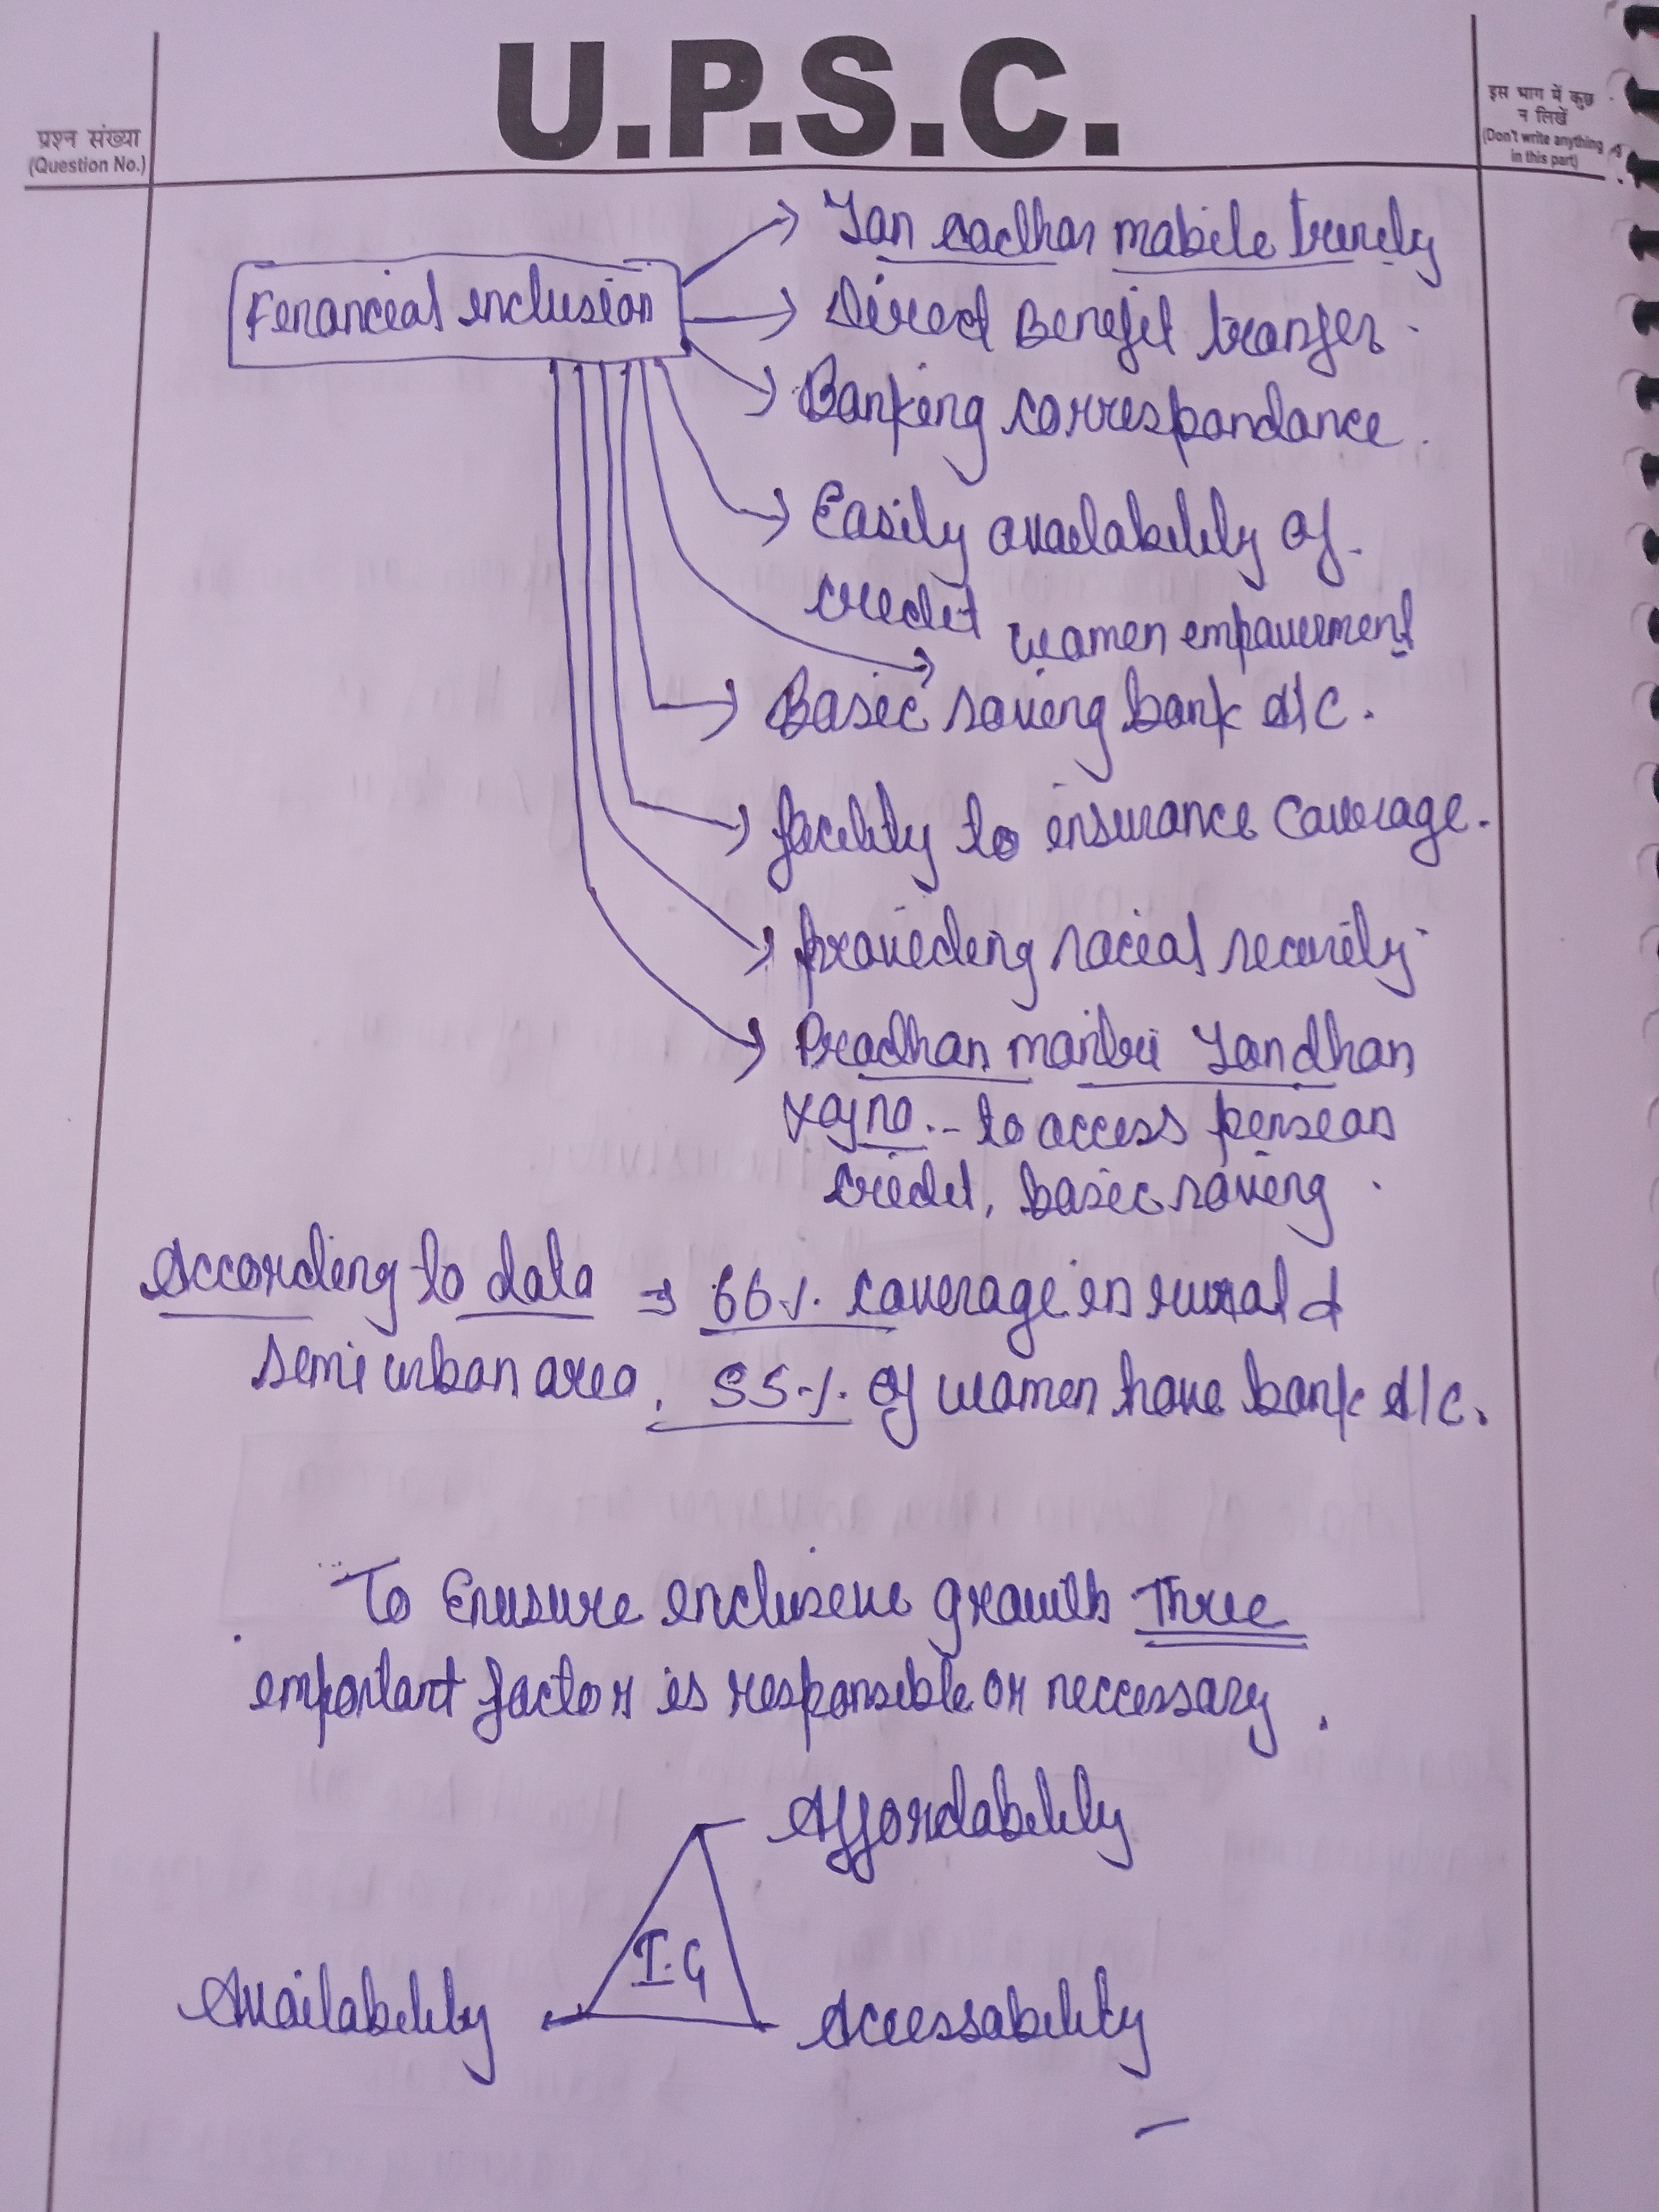 U.P.S.C.
प्रश्न संख्या
(Question No.)
इस भाग में कुछ
न लिखें
(Don't write anything
in this part)
Financial inclusion
Jan aadhar mobile trinity
Direct Benefit transfer.
Banking correspondance.
Easily availability of
credit
women empowerment
Basic saving bank A/C.
facility to insurance coverage.
providing social security
Pradhan mantri Jandhan
Yojna.- to access
credit, basic saving.
According to data ⇒ 66% coverage in rural &
semi urban area, 55% of women have bank A/C.
To Enusure inclusive growth Three
important factor is responsible or neccessary.
Affordability
I.G
Availability
Accessability